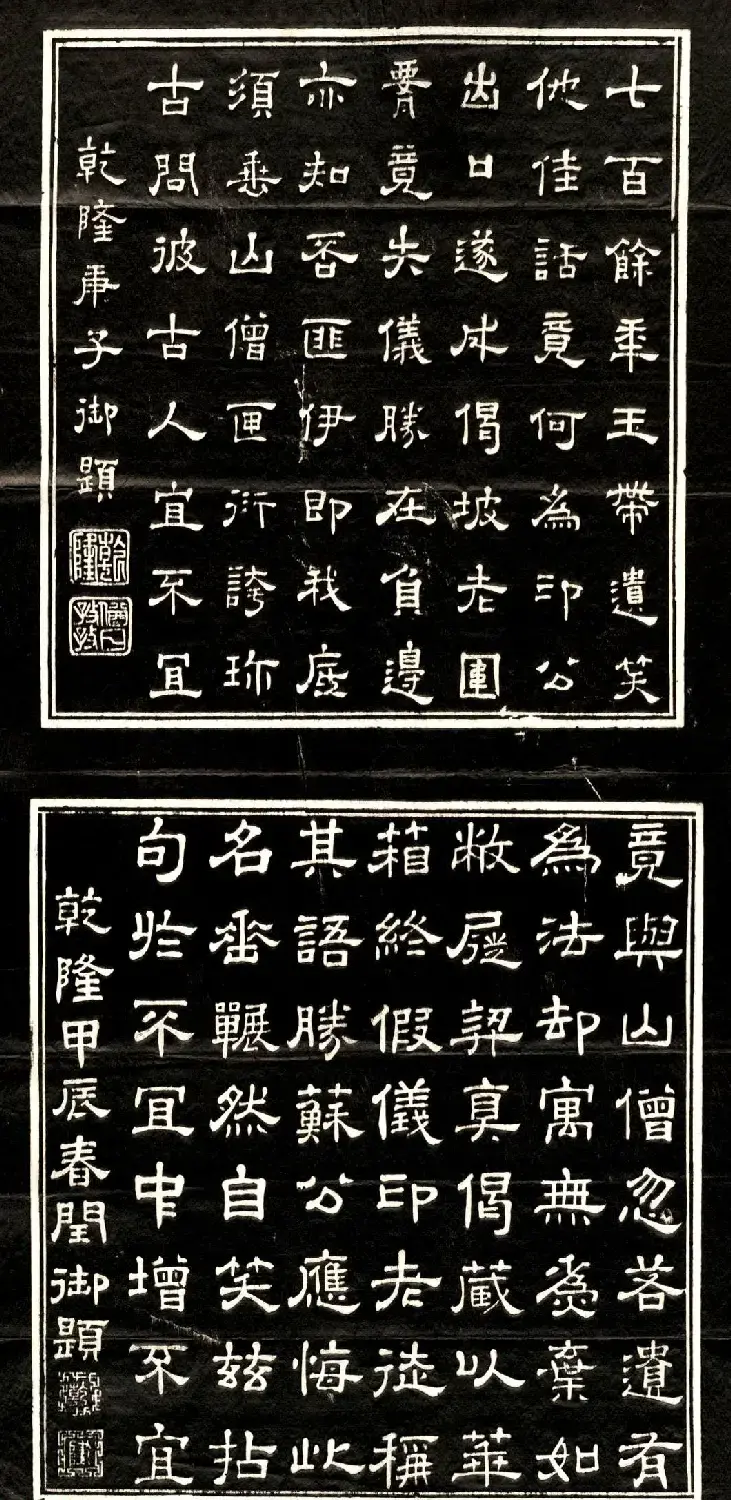 七百餘年玉帶遺笑
他佳話竟何為印公
出口遂成偈坡老圍
腰竟失儀勝在負邊
亦知否匪伊即我底
須垂山僧匣衍誇珎
古問彼古人宜不宜
乾隆庚子御題
乾隆
竟與山僧忽若遺有
為法却寓無為棄如
敝屣契真偈藏以華
箱終假儀印老徒稱
其語勝蘇公應悔此
名垂囅然自笑茲拈
句於不宜中增不宜
乾隆甲辰春閏御題